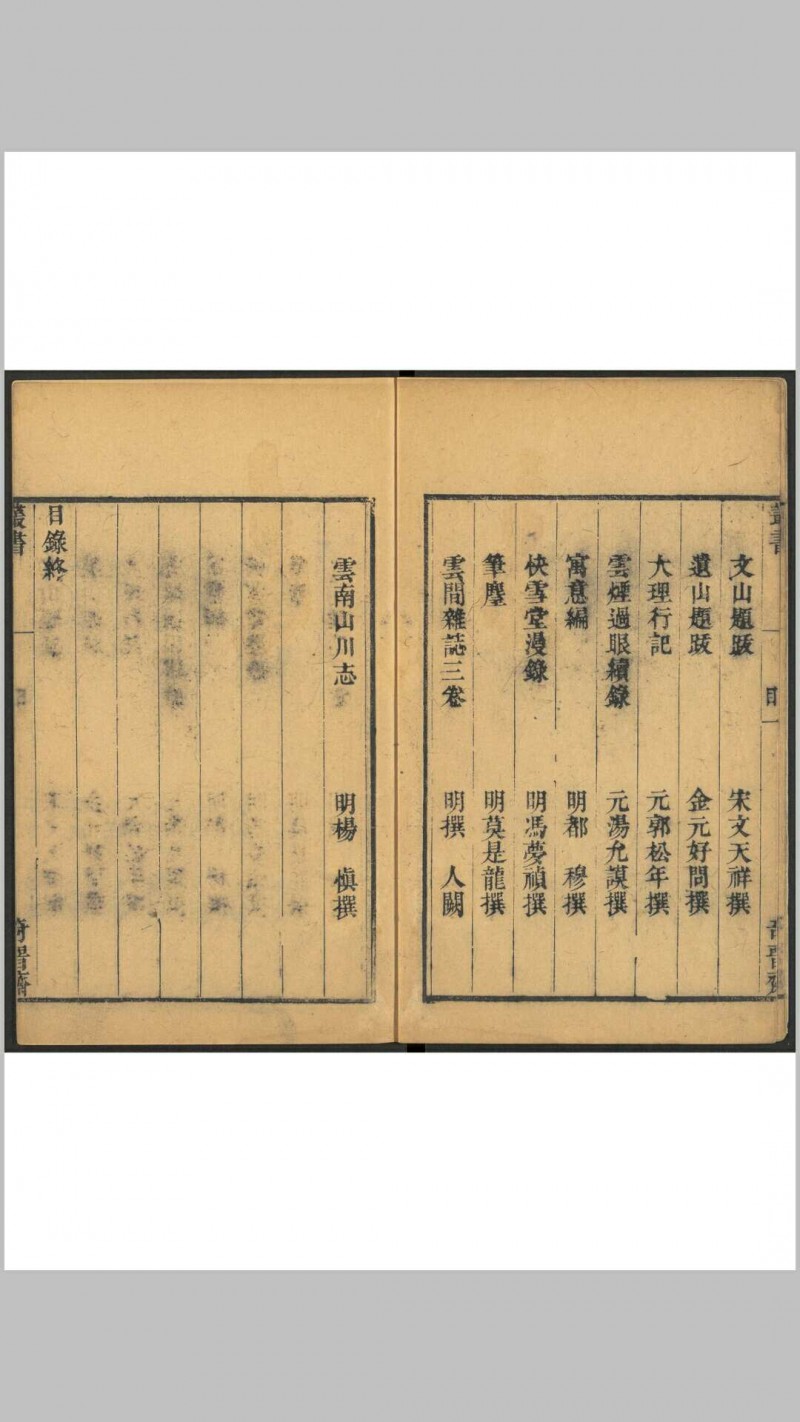 文山題跋　宋文天祥撰
遺山題跋　金元好問撰
大理行記　元郭松年撰
雲煙過眼續錄　元湯允謨撰
寓意編　明都　穆撰
快雪堂漫錄　明馮夢禎撰
筆麈　明莫是龍撰
雲間雜誌三卷　明撰　人闕
雲南山川志　明楊　慎撰
目錄終
叢書
奇晉齋